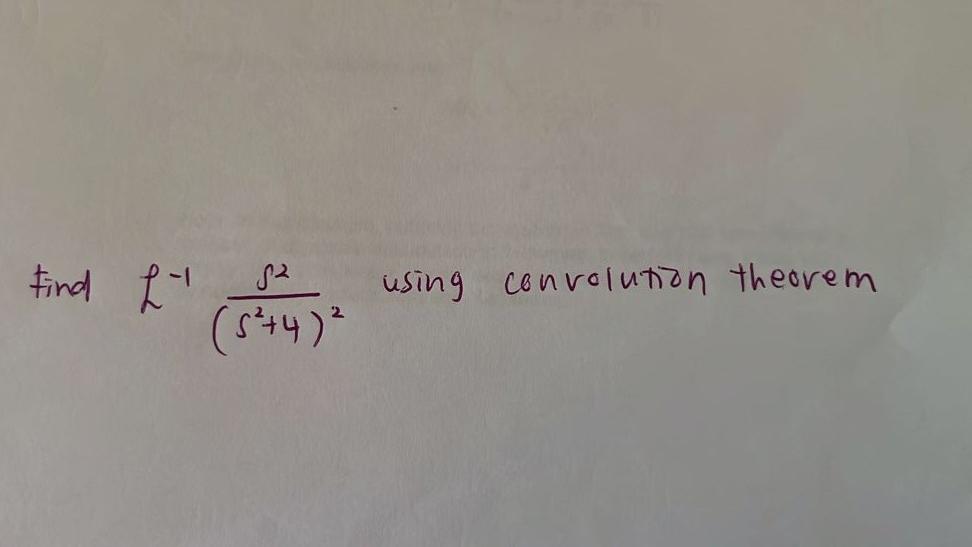 Find £⁻¹ s²/(s²+4)² using convolution theorem